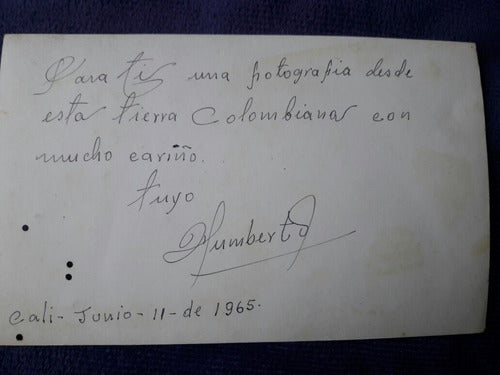 Para ti una fotografia desde
esta tierra Colombiana con
mucho cariño.
tuyo
Humberto
Cali - Junio - 11 - de 1965.